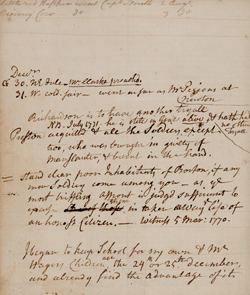 Decr
G 30. Mr Clarke preached
31. W. cold. fair — went as far as Mr Pigeons at
Richardson is to have another tryall
NB. July 1771. he is still in goal alive & hath had
Preston acquitted & all the Soldiers, except
two, who were brought in guilty of
manslauter, & burnt in the hand.
Stand clear poor Inhabitants of Boston, if any
more Soldiers come among you — as ye
most trifling affront is judged sufficient to
in taken away ye life of
an honest Citizen. — witness 5 Mar: 1770.
I began to keep School for my own & Mr
Children the 24 or 25th december,
and already find the advantage of it.